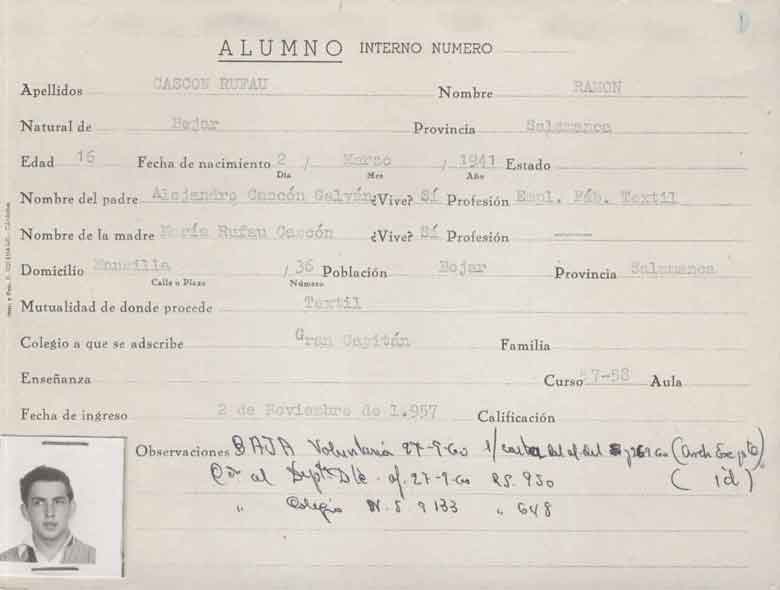 ALUMNO INTERNO NUMERO
Apellidos CASCON RUFAU Nombre RAMON
Natural de Bejar Provincia Salamanca
Edad 16 Fecha de nacimiento 2 / Marzo / 1941 Estado
Día Mes Año
Nombre del padre Alejandro Cascón Galván ¿Vive? Sí Profesión Empl. Fáb. Textil
Nombre de la madre María Rufau Cascón ¿Vive? Sí Profesión ———
Domicilio Mansilla / 36 Población Bejar Provincia Salamanca
Calle o Plaza Número
Mutualidad de donde procede Textil
Colegio a que se adscribe Gran Capitán Familia
Enseñanza Curso 57-58 Aula
Fecha de ingreso 2 de Noviembre de 1.957 Calificación
Observaciones BAJA Voluntaria 27-9-60 s/ carta del (Arch Expte)
al Dpto. of. 27-9-60 RS. 950 (id)
" Colegio N. S 9133 " 648